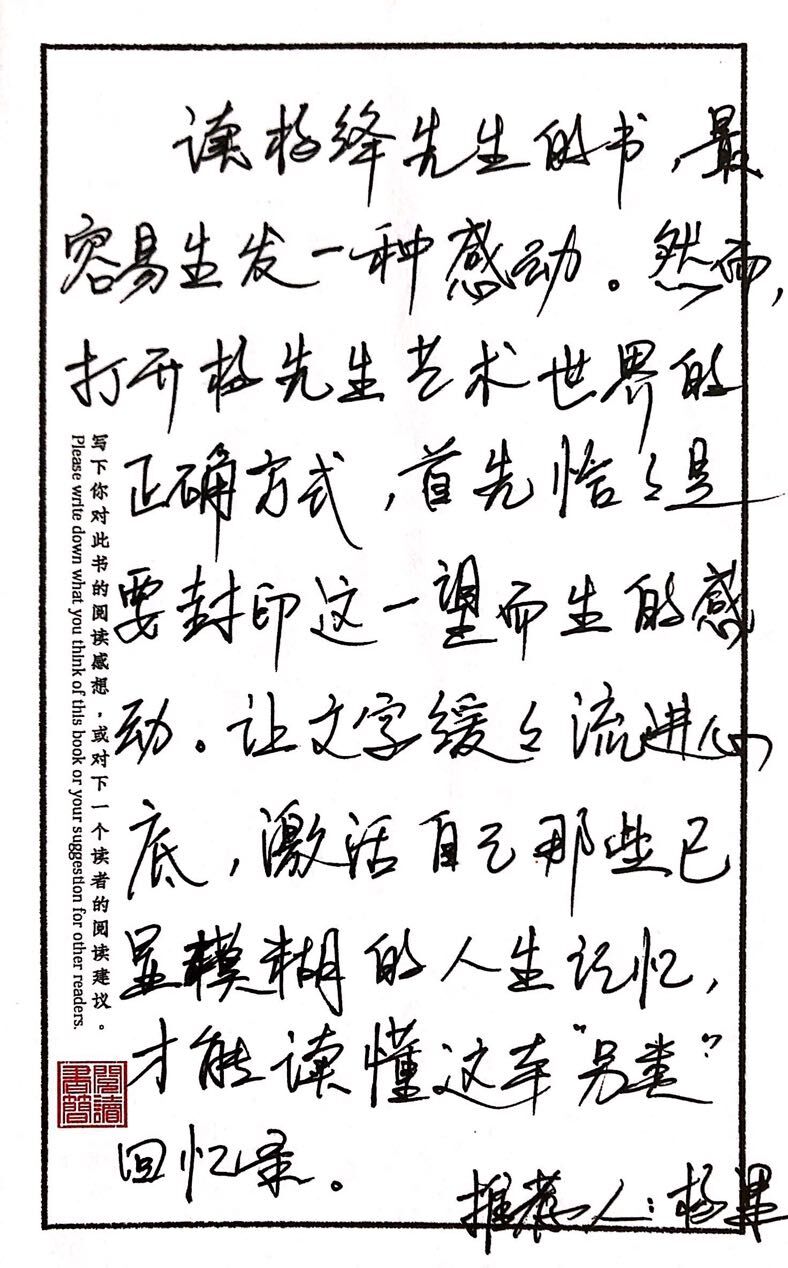 读杨绛先生的书，最
容易生发一种感动。然而，
打开杨先生艺术世界的
正确方式，首先恰々是
要封印这一望而生的感
动。让文字缓々流进心
底，激活自己那些已
显模糊的人生记忆，
才能读懂这本“另类”
回忆录。
推荐人：杨早
写下你对此书的阅读感想，或对下一个读者的阅读建议。
Please write down what you think of this book or your suggestion for other readers.
閱讀
書簡